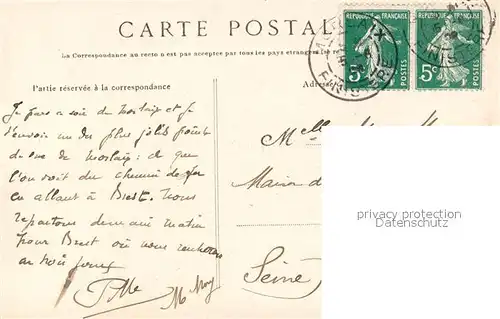 CARTE POSTALE
La Correspondance au recto n'est pas acceptée par tous pays étrangers
Partie réservée à la correspondance
Adresse
REPUBLIQUE FRANÇAISE
5c POSTES
REPUBLIQUE FRANÇAISE
5c POSTES
FINISTERE
Je pars ce soir de Morlaix et je
t'envoie un du plus jolis point
de vue de Morlaix : ce que
l'on voit du chemin de fer
en allant à Brest. Nous
repartons demain matin
pour Brest où nous resterons
Melle
Maison d
Seine
privacy protection
Datenschutz